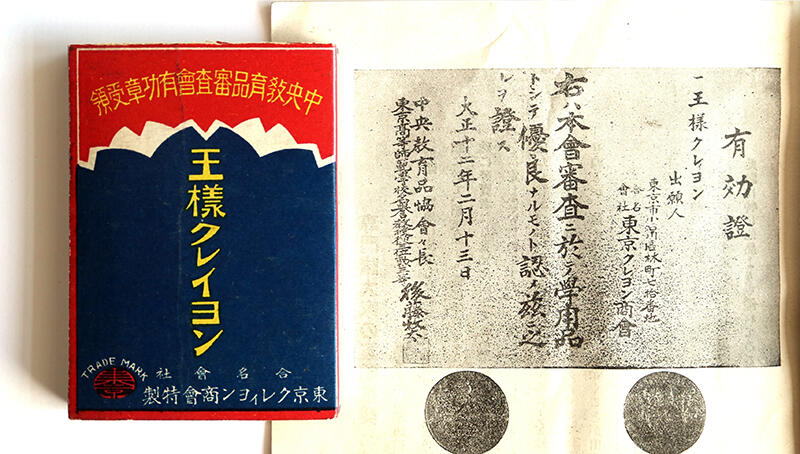 中央教育品審査會有功章受領
王樣クレイヨン
TRADE MARK
東京
合名會社
東京クレイヨン商會特製
有効證
一王樣クレヨン
出願人
東京市小石川區林町七拾番地
合名會社 東京クレヨン商會
右ハ本會審査ニ於テ學用品
トシテ優良ナルモノト認メ茲ニ之
レヲ證ス
大正十二年二月十三日
中央教育品協會々長
東京高等師範學校 後藤牧太